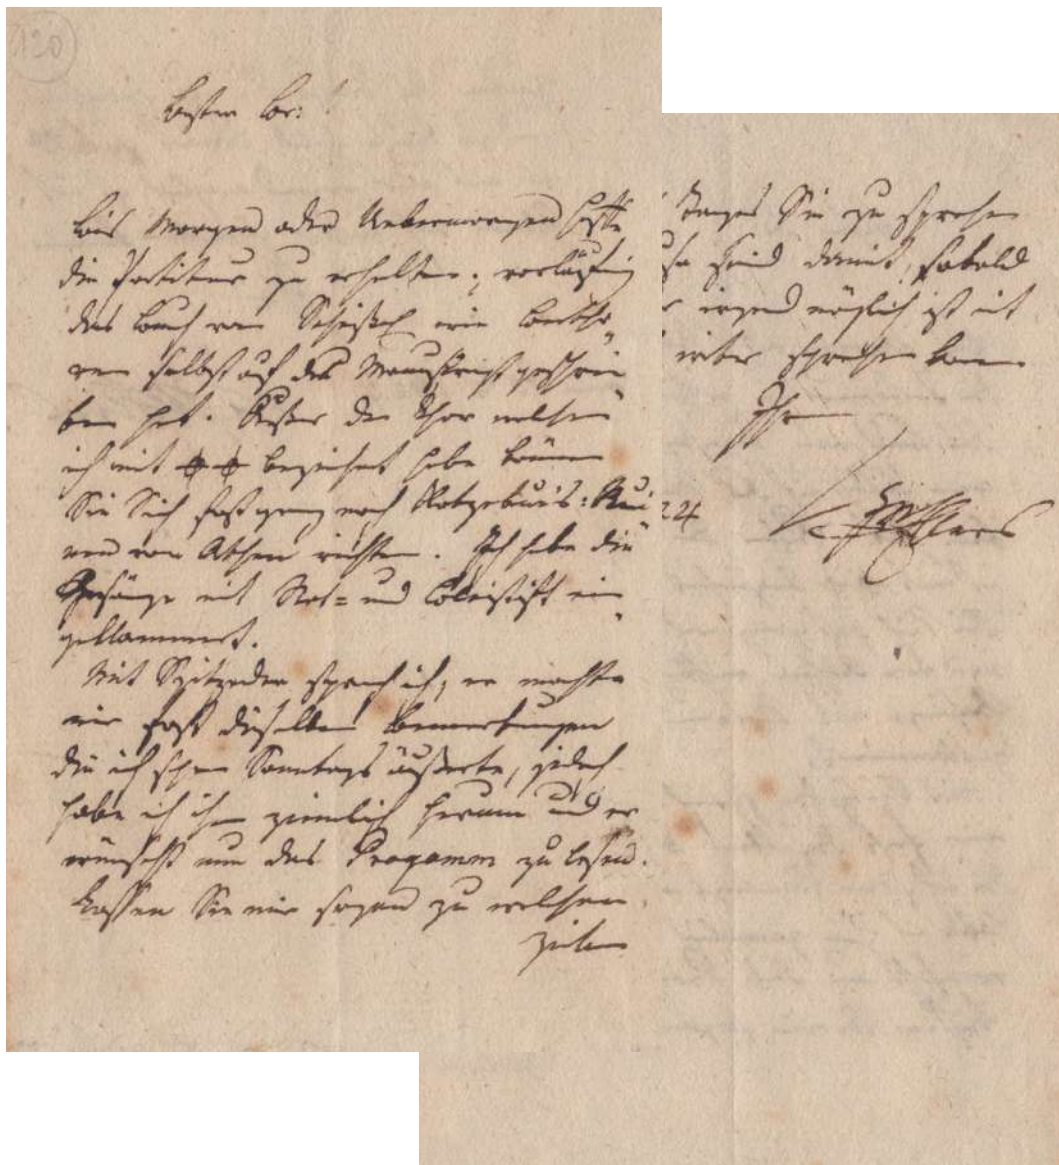 120
Bester Br:!
Bis Morgen oder Uebermorgen hoffe
die Partitur zu erhalten; vorläufig
das Buch von wie Beetho„
ven selbst auf das Manuskript geschrie
ben hat. Außer den Chor welchen
ich mit ## bezeichnet habe können
Sie Sich fast ganz nach Kotzebue's: Rui
nen von Athen richten. Ich habe die
Gesänge mit Rot= und Bleistift ein„
geklammert.
Mit Spitzeder sprach ich, er machte
mir fast dieselben Bemerkungen
die ich schon Sonntags äußerte, jedoch
habe ich ihn ziemlich herum und er
wünscht nun das Progamm zu lesen.
Lassen Sie mir sagen zu welchen
Zeiten
Tages Sie zu sprechen
sind damit, sobald
irgend möglich ist ich
sprechen kann
Ihr
24
Ehlers